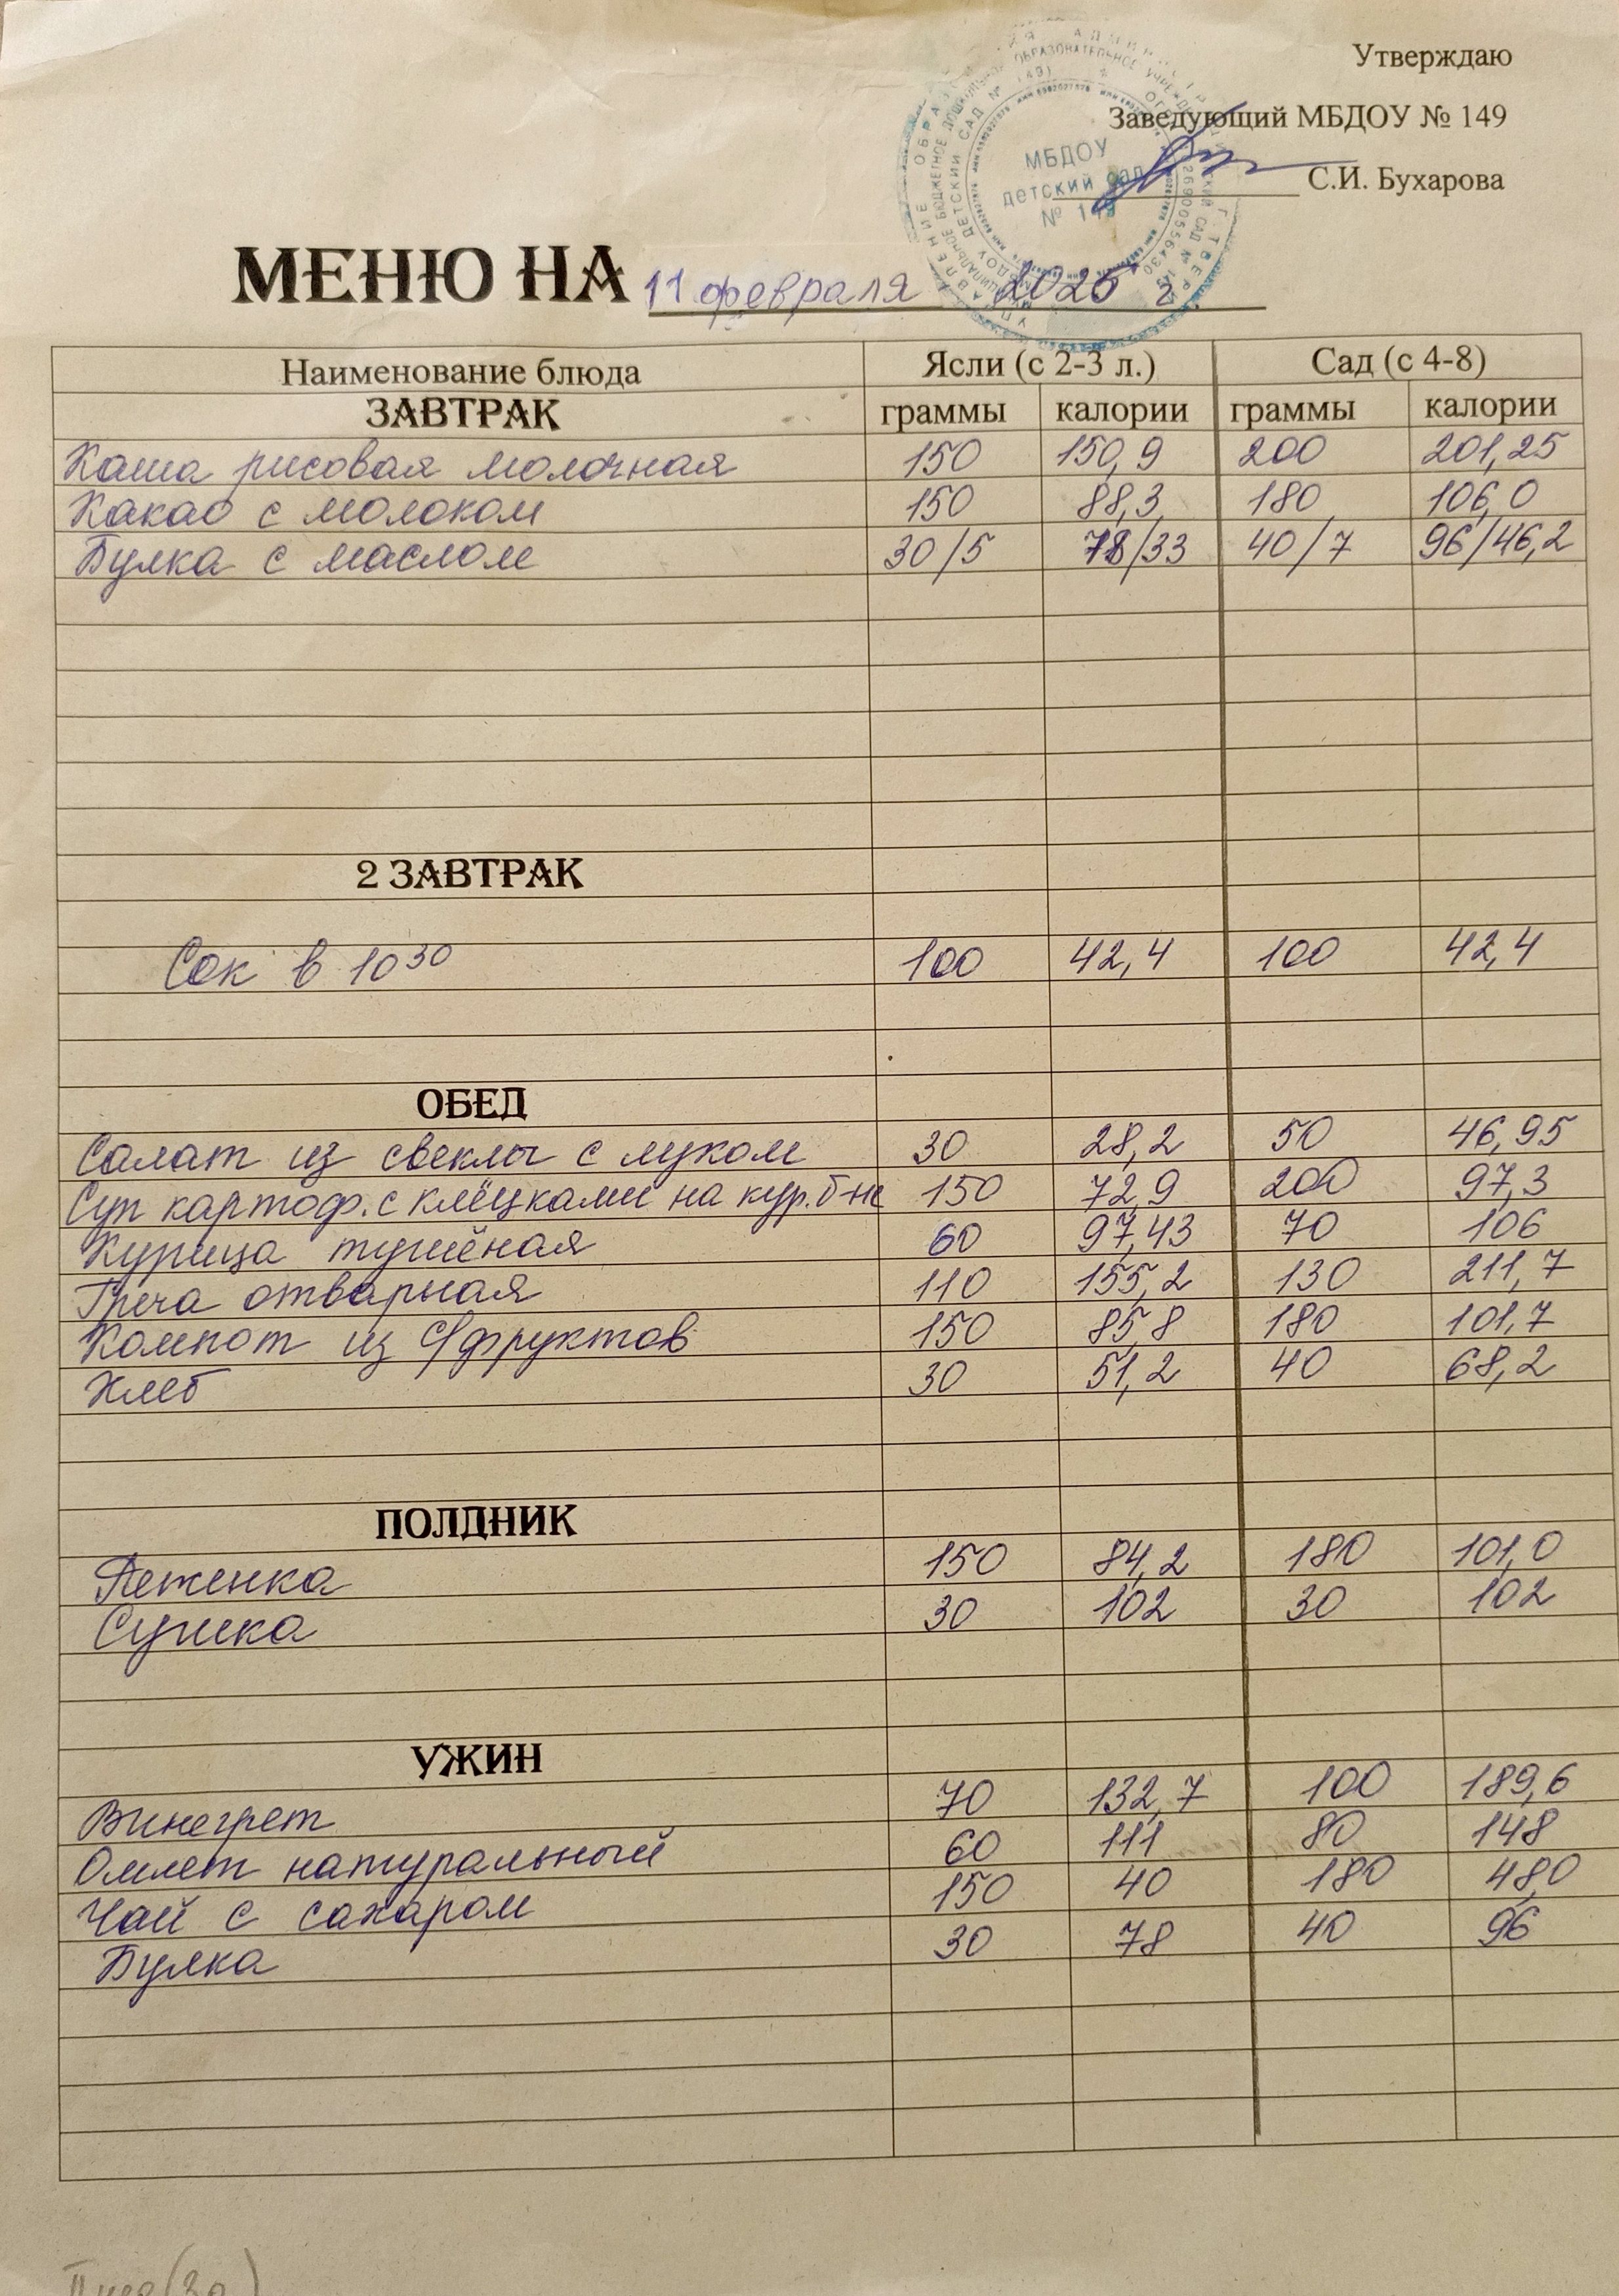 Утверждаю
Заведующий МБДОУ № 149
С.И. Бухарова
МБДОУ
детский сад
№ 149
МЕНЮ НА 11 февраля 2025 г.
Наименование блюда Ясли (с 2-3 л.) Сад (с 4-8)
ЗАВТРАК граммы калории граммы калории
Каша рисовая молочная 150 150,9 200 201,25
Какао с молоком 150 88,3 180 106,0
Булка с маслом 30/5 78/33 40/7 96/46,2
2 ЗАВТРАК
Сок в 10 30 100 42,4 100 42,4
ОБЕД
Салат из свеклы с луком 30 28,2 50 46,95
Суп картоф. с клёцками на кур. б-не 150 72,9 200 97,3
Курица тушёная 60 97,43 70 106
Греча отварная 110 155,2 130 211,7
Компот из с/фруктов 150 85,8 180 101,7
Хлеб 30 51,2 40 68,2
ПОЛДНИК
Ряженка 150 84,2 180 101,0
Сушка 30 102 30 102
УЖИН
Винегрет 70 132,7 100 189,6
Омлет натуральный 60 111 80 148
Чай с сахаром 150 40 180 48,0
Булка 30 78 40 96